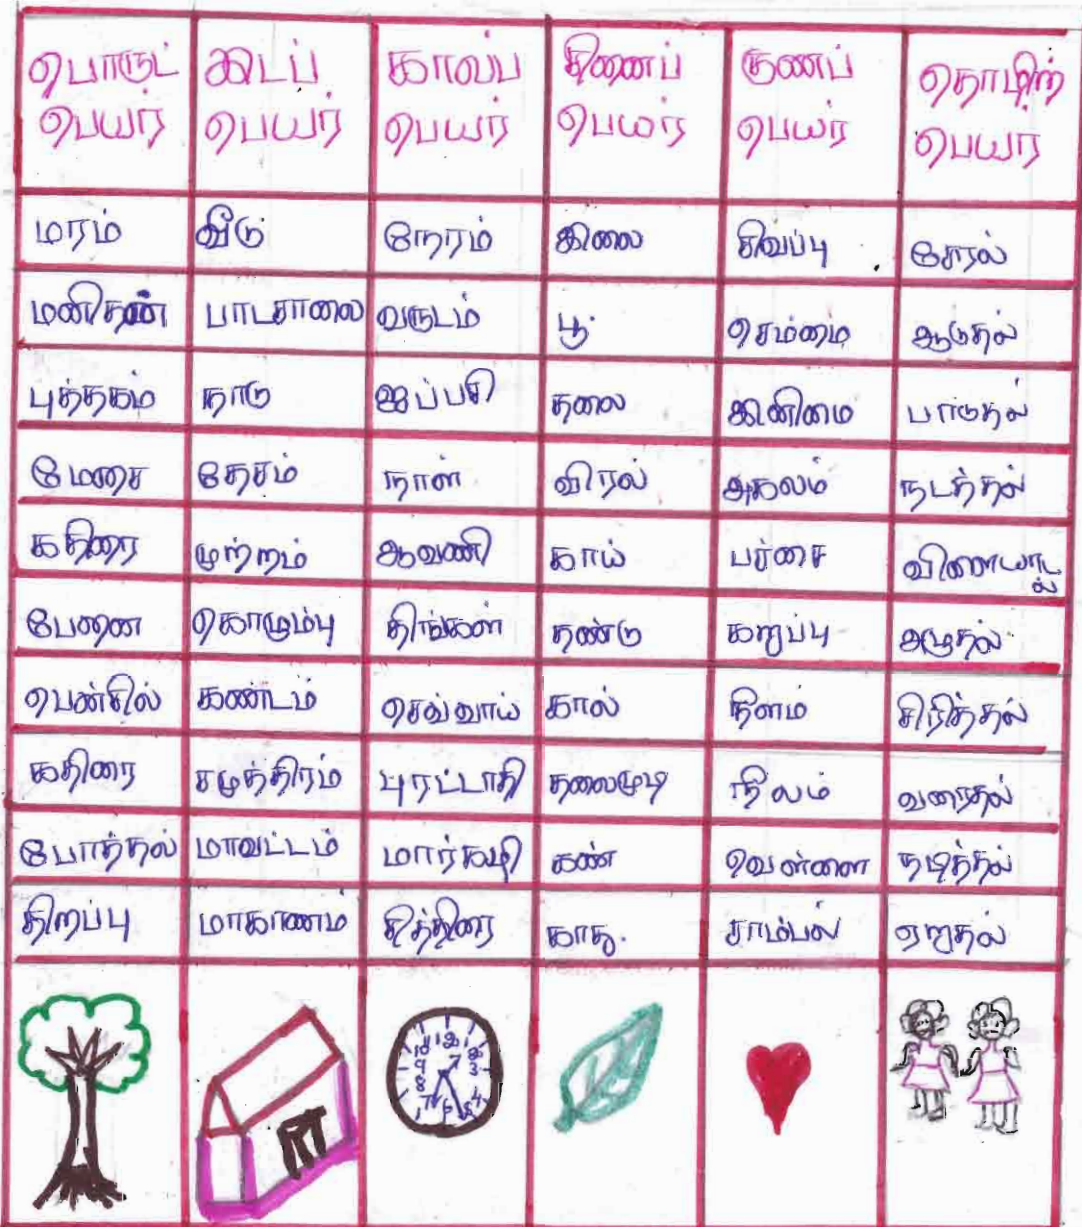 பொருட் இடப் காலப் சினைப் குணப் தொழிற்
பெயர் பெயர் பெயர் பெயர் பெயர் பெயர்
மரம் வீடு நேரம் இலை சிவப்பு சேரல்
மனிதன் பாடசாலை வருடம் பூ செம்மை ஆடுதல்
புத்தகம் நாடு ஐப்பசி தலை இனிமை பாடுதல்
மேசை தேசம் நாள் விரல் அகலம் நடத்தல்
கதிரை முற்றம் ஆவணி காய் பச்சை விளையாடல்
பேனை கொழும்பு திங்கள் தண்டு கறுப்பு அழுதல்
பென்சில் கண்டம் செவ்வாய் கால் நீளம் சிரித்தல்
கதிரை சமுத்திரம் புரட்டாதி தலைமுடி நீலம் வரைதல்
போத்தல் மாவட்டம் மார்கழி கண் வெள்ளை நடித்தல்
திறப்பு மாகாணம் சித்திரை காது. சாம்பல் ஏறுதல்